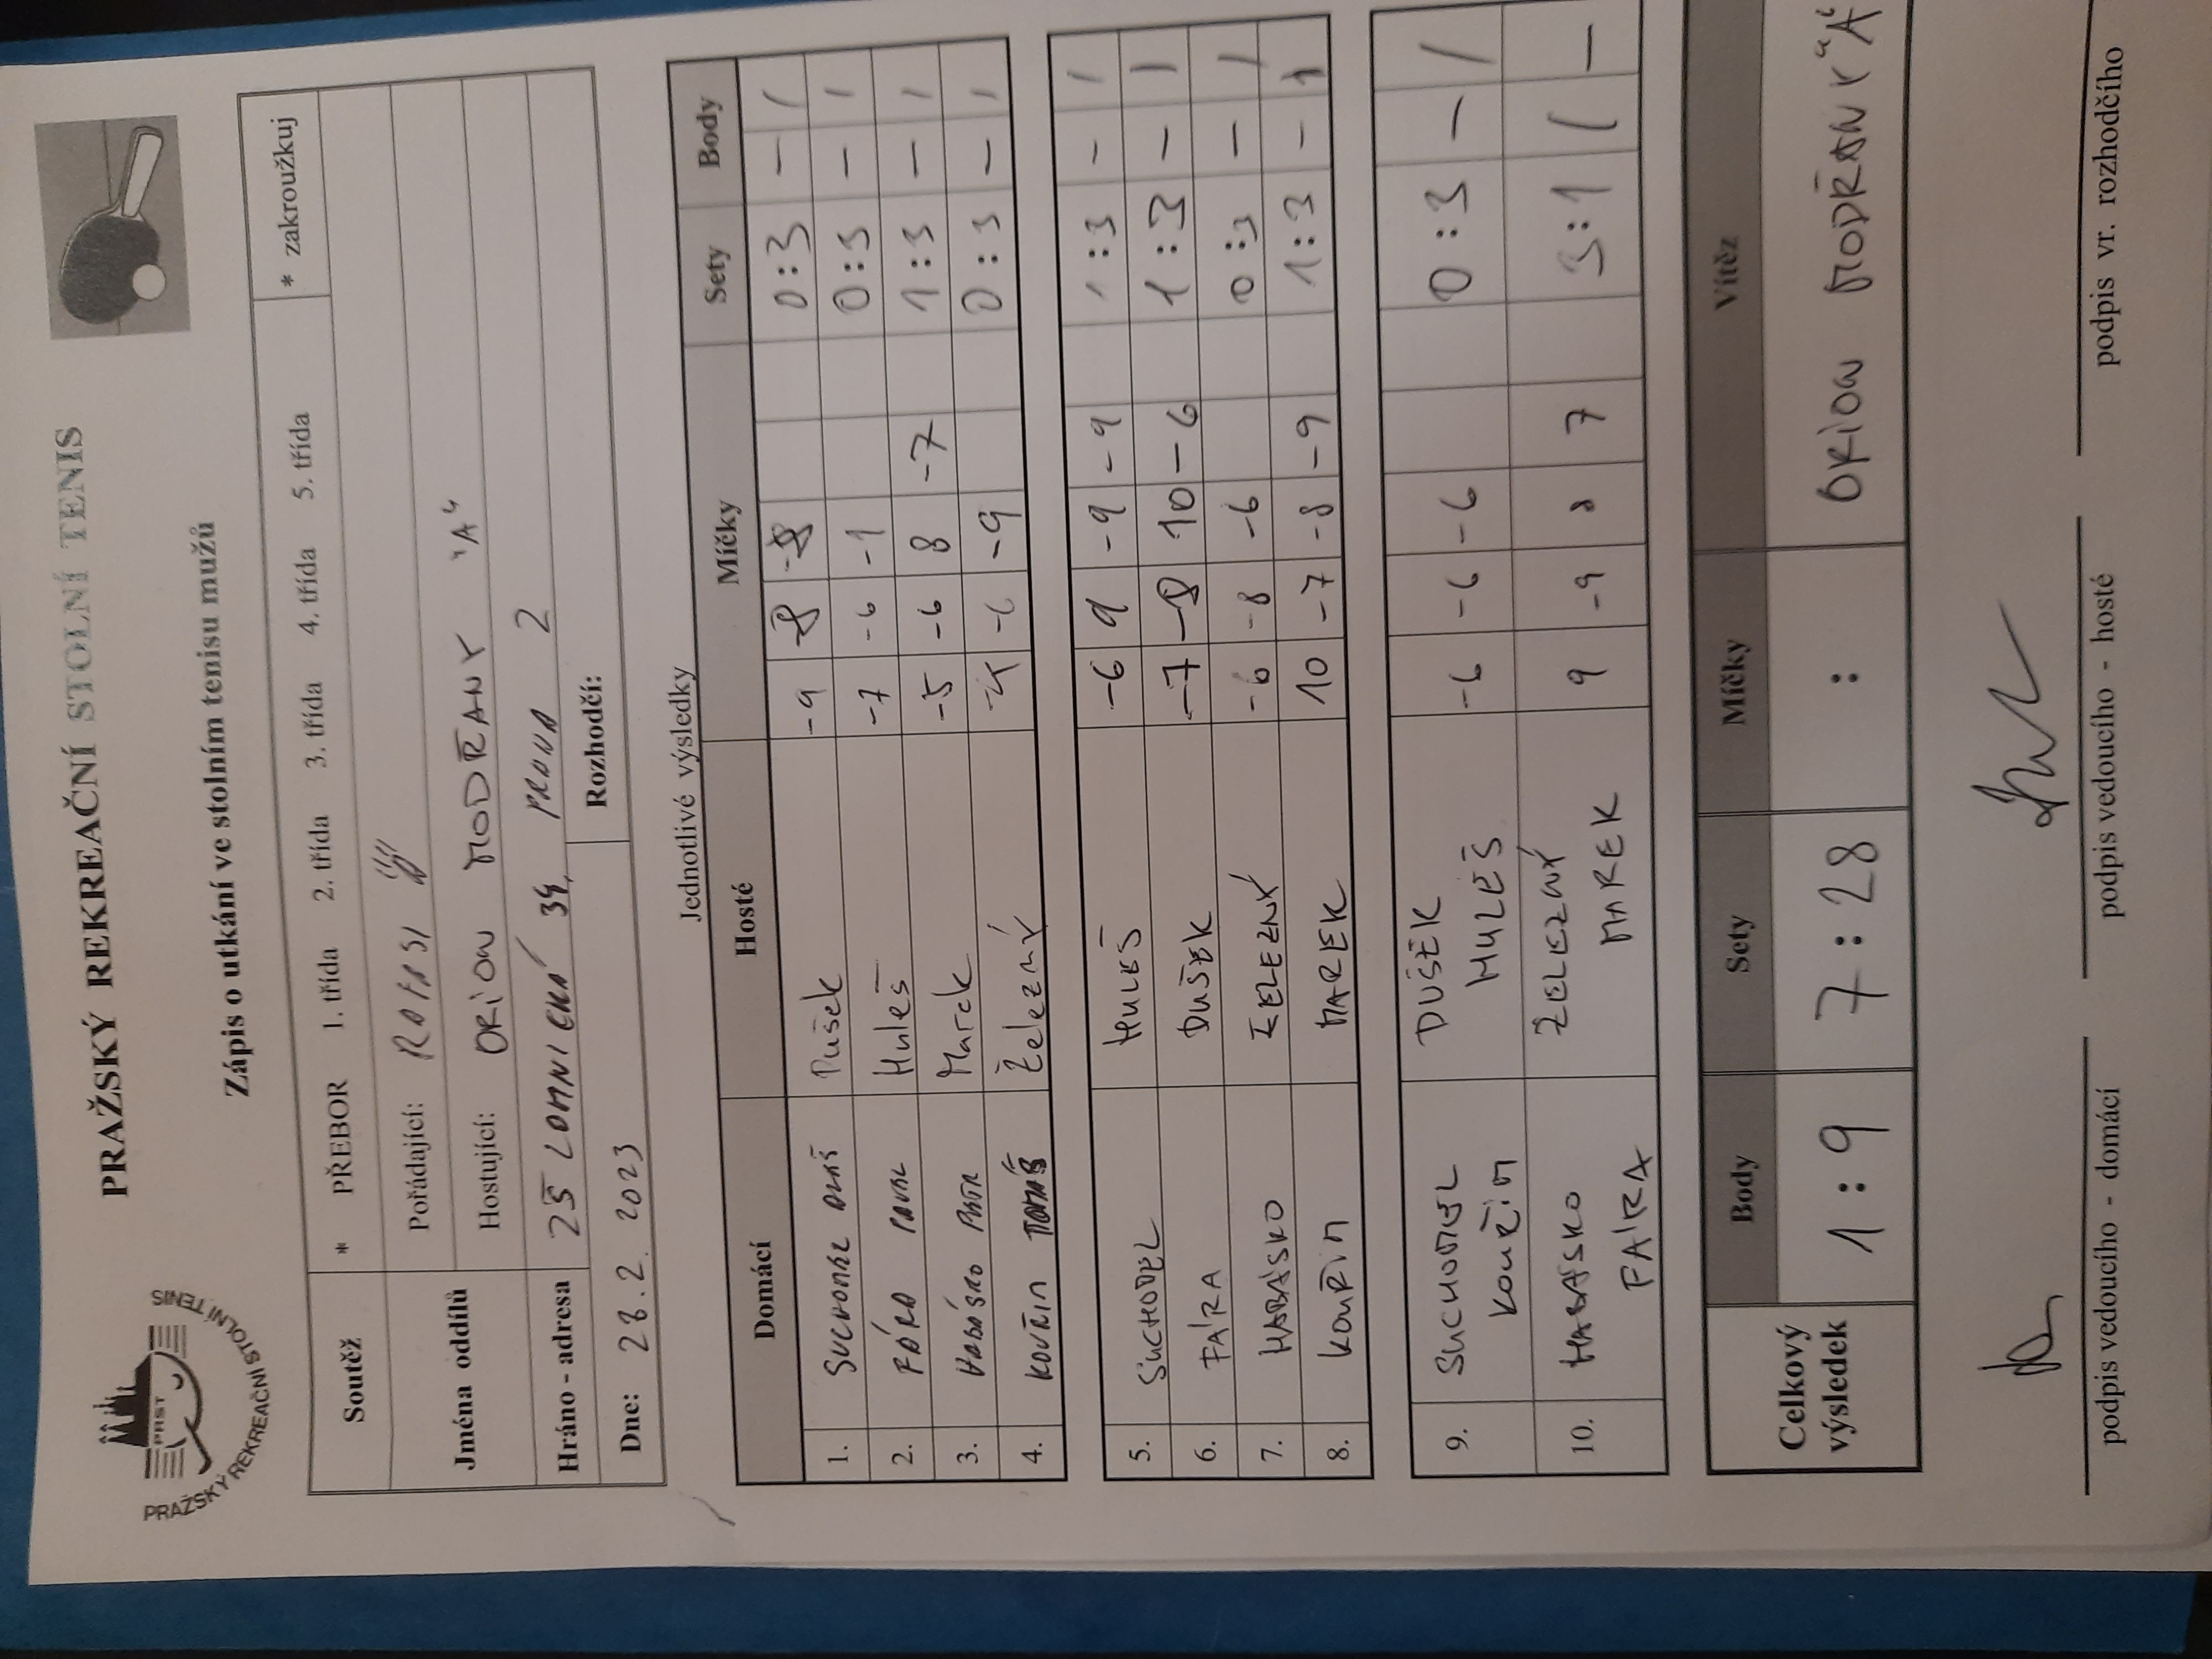 PRAŽSKÝ REKREAČNÍ STOLNÍ TENIS
PRST
PRAŽSKÝ REKREAČNÍ STOLNÍ TENIS
Zápis o utkání ve stolním tenisu mužů
Soutěž * PŘEBOR 1. třída 2. třída 3. třída 4. třída 5. třída * zakroužkuj
Jména oddílů
Pořádající:
Hostující: ORION MODŘANY "A"
Hráno - adresa 39, 2
Dne: 28.2. 2023 Rozhodčí:
Jednotlivé výsledky
Domácí Hosté Míčky Sety Body
1. Dušek -9 -8 -8 0:3 – /
2. Huleš -7 -6 -1 0:3 – /
3. Marek -5 -6 8 -7 1:3 – /
4. KOUŘIM TOMÁŠ Železný -6 -9 0:3 – /
5. SUCHOMEL HULEŠ -6 9 -9 -9 1:3 – /
6. FARA DUŠEK -7 -8 10 -6 1:3 – /
7. HABÁSKO ŽELEZNÝ -6 -8 -6 0:3 – /
8. KOUŘIM MAREK 10 -7 -8 -9 1:3 – 1
9. SUCHOMEL DUŠEK -6 -6 -6 0:3 – /
KOUŘIM HULEŠ
10. HABÁSKO ŽELEZNÝ 9 -9 8 7 3:1 / –
FARA MAREK
Celkový výsledek
Body Sety Míčky Vítěz
1:9 7:28 : ORION MODŘANY "A"
podpis vedoucího - domácí podpis vedoucího - hosté podpis vr. rozhodčího